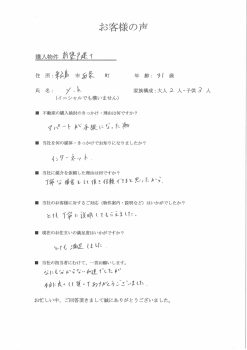 お客様の声
購入物件 新築戸建て
住所： 市 町 年齢：31歳
氏名：Y.K 家族構成：大人2人・子供3人
（イニシャルでも構いません）
■ 不動産の購入検討のきっかけ・理由は何ですか？
アパートが手狭になった為
■ 当社を何の媒体・きっかけでお知りになりましたか？
インターネット
■ 当社に媒介を依頼した理由は何ですか？
丁寧な にして頂き信頼できると思ったから。
■ 当社のお客様に対するご対応（物件案内・説明など）はいかがでしたか？
とても丁寧に説明してもらえました。
■ 現在のお住まいの満足度はいかがですか？
とても満足しました
■ 当社の担当者にむけて、一言お願いします。
なにもわからない状態でしたが
お忙しい中、ご回答頂きまして誠にありがとうございました。